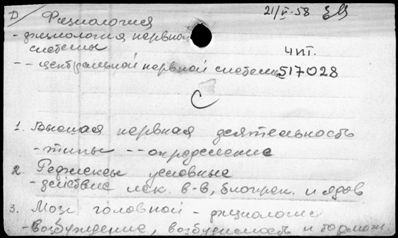 D Физиология 21/V-58
- физиология нервной
системы чит.
-- центральной нервной системы 517028
C
1. Высшая нервная деятельность
- типы -- определение
2. Рефлексы условные
- действие лек. в-в, биоген. и ядов
3. Мозг головной - физиология
- возбуждение, возбудимость и тормож